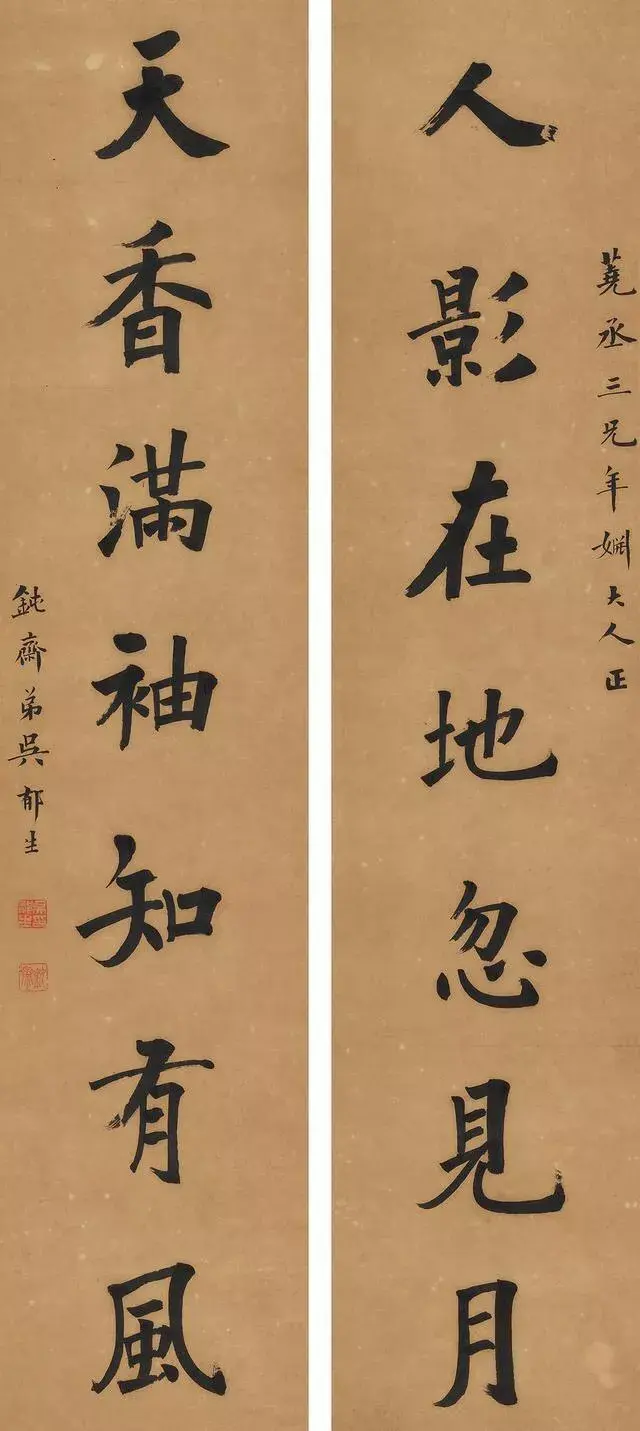 蕘丞三兄年婣大人正
人影在地忽見月
天香滿袖知有風
鈍齋弟吳郁生